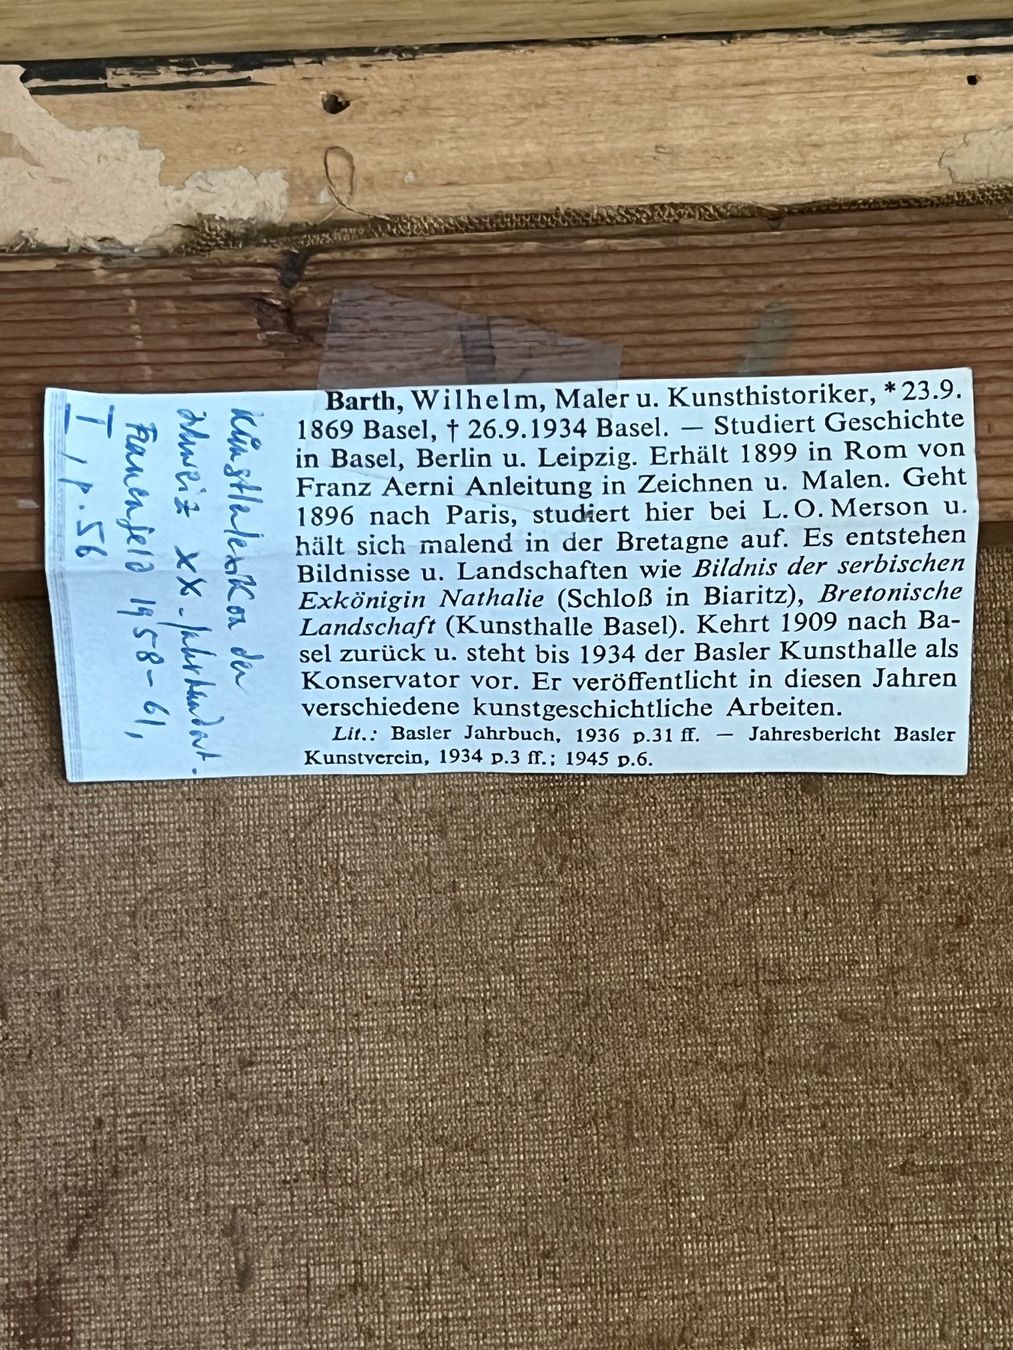 Barth, Wilhelm, Maler u. Kunsthistoriker, * 23.9.
1869 Basel, † 26.9.1934 Basel. — Studiert Geschichte
in Basel, Berlin u. Leipzig. Erhält 1899 in Rom von
Franz Aerni Anleitung in Zeichnen u. Malen. Geht
1896 nach Paris, studiert hier bei L. O. Merson u.
hält sich malend in der Bretagne auf. Es entstehen
Bildnisse u. Landschaften wie Bildnis der serbischen
Exkönigin Nathalie (Schloß in Biaritz), Bretonische
Landschaft (Kunsthalle Basel). Kehrt 1909 nach Ba-
sel zurück u. steht bis 1934 der Basler Kunsthalle als
Konservator vor. Er veröffentlicht in diesen Jahren
verschiedene kunstgeschichtliche Arbeiten.
Lit.: Basler Jahrbuch, 1936 p.31 ff. — Jahresbericht Basler
Kunstverein, 1934 p.3 ff.; 1945 p.6.
Künstlerlexikon der
Schweiz XX. Jahrhundert.
Frauenfeld 1958-61,
I, p. 56